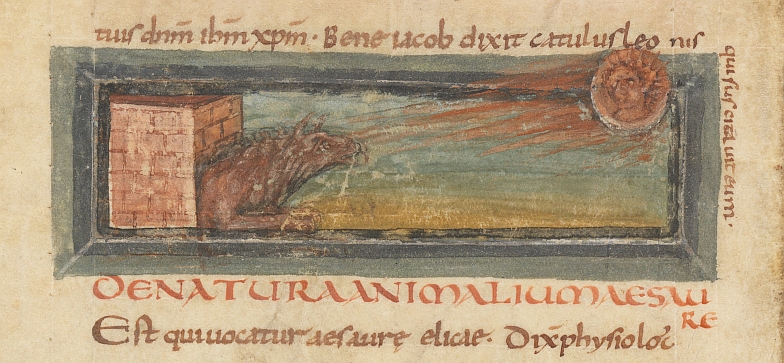 tuis dnm ihm xpm · Bene iacob dixit catulus leo nis
qui suscitauit eum ·
DE NATURA ANIMALIUM AESAU
RE
Est qui uocatur aesaurę elicae · Dix physioloc